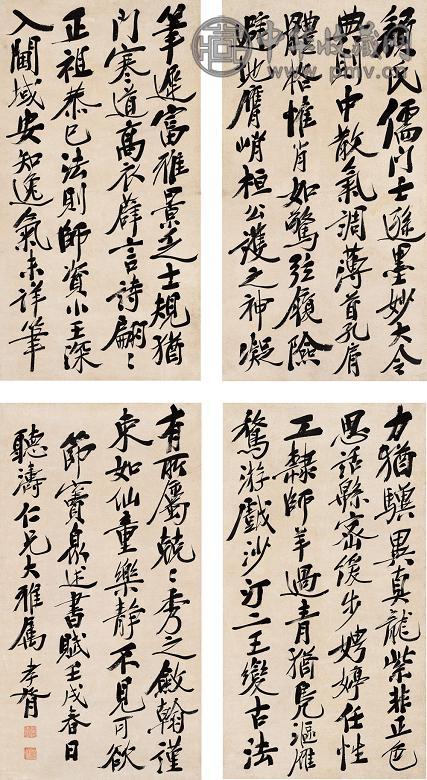 氏儒門士遜墨妙大令
典則中散氣調薄首孔肩
體格惟肖如驚弦履險
避地膺峭桓公護之神凝
筆遲富雅景之士規猶
門寒道高衣薜言詩翩〻
正祖恭己法則師資小王深
入閫域安知逸氣未詳筆
力猶驥異真龍紫非正色
思話緜密緩步娉婷任性
工隸師羊過青猶鳧漚雁
騖游戲沙汀二王變古法
有所屬兢〻秀之斂翰謹
束如仙童樂静不見可欲
節竇臮述書賦壬戌春日
聽濤仁兄大雅屬 孝胥